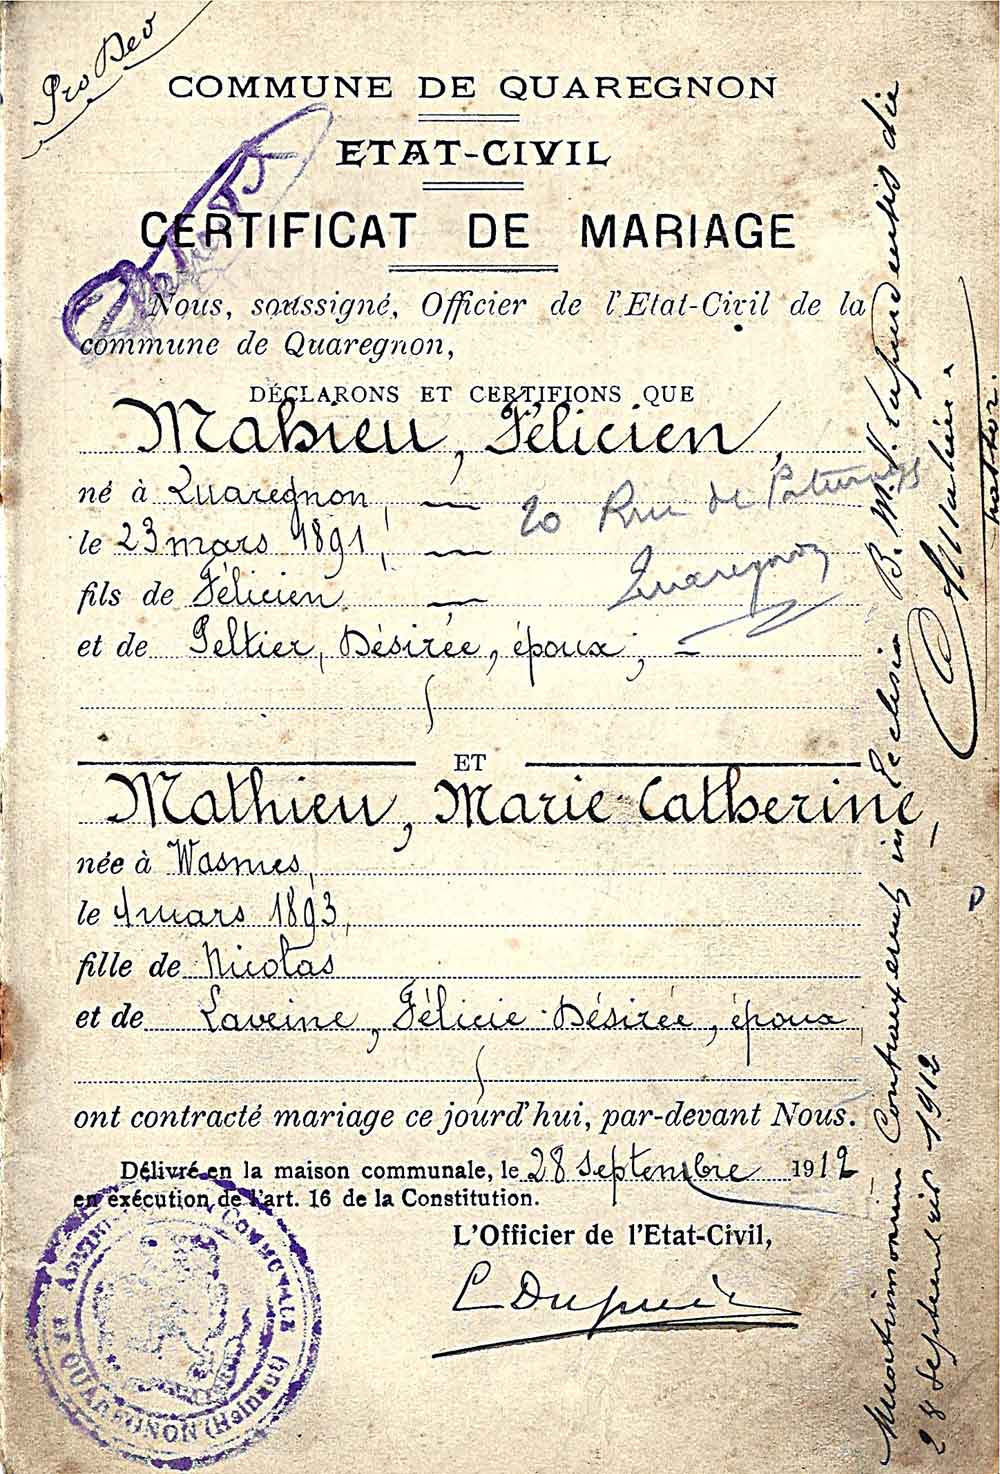 Pro Deo
COMMUNE DE QUAREGNON
ETAT-CIVIL
CERTIFICAT DE MARIAGE
Nous, soussigné, Officier de l'Etat-Civil de la
commune de Quaregnon,
DÉCLARONS ET CERTIFIONS QUE
Mahieu, Félicien,
né à Quaregnon,
20 Rue de Paturages
le 23 mars 1891,
Quaregnon
fils de Félicien
et de Peltier, Désirée, époux,
ET
Mathieu, Marie Catherine,
née à Wasmes,
le 4 mars 1893,
fille de Nicolas
et de Laveine, Félicie Désirée, époux,
ont contracté mariage ce jourd'hui, par-devant Nous.
Délivré en la maison communale, le 28 Septembre 1912
en exécution de l'art. 16 de la Constitution.
L'Officier de l'Etat-Civil,
COMMUNALE DE QUAREGNON (Hainaut)
Matrimonium Contraxerunt in Ecclesia B. M. V. Lapurdensis die
28 Septembris 1912